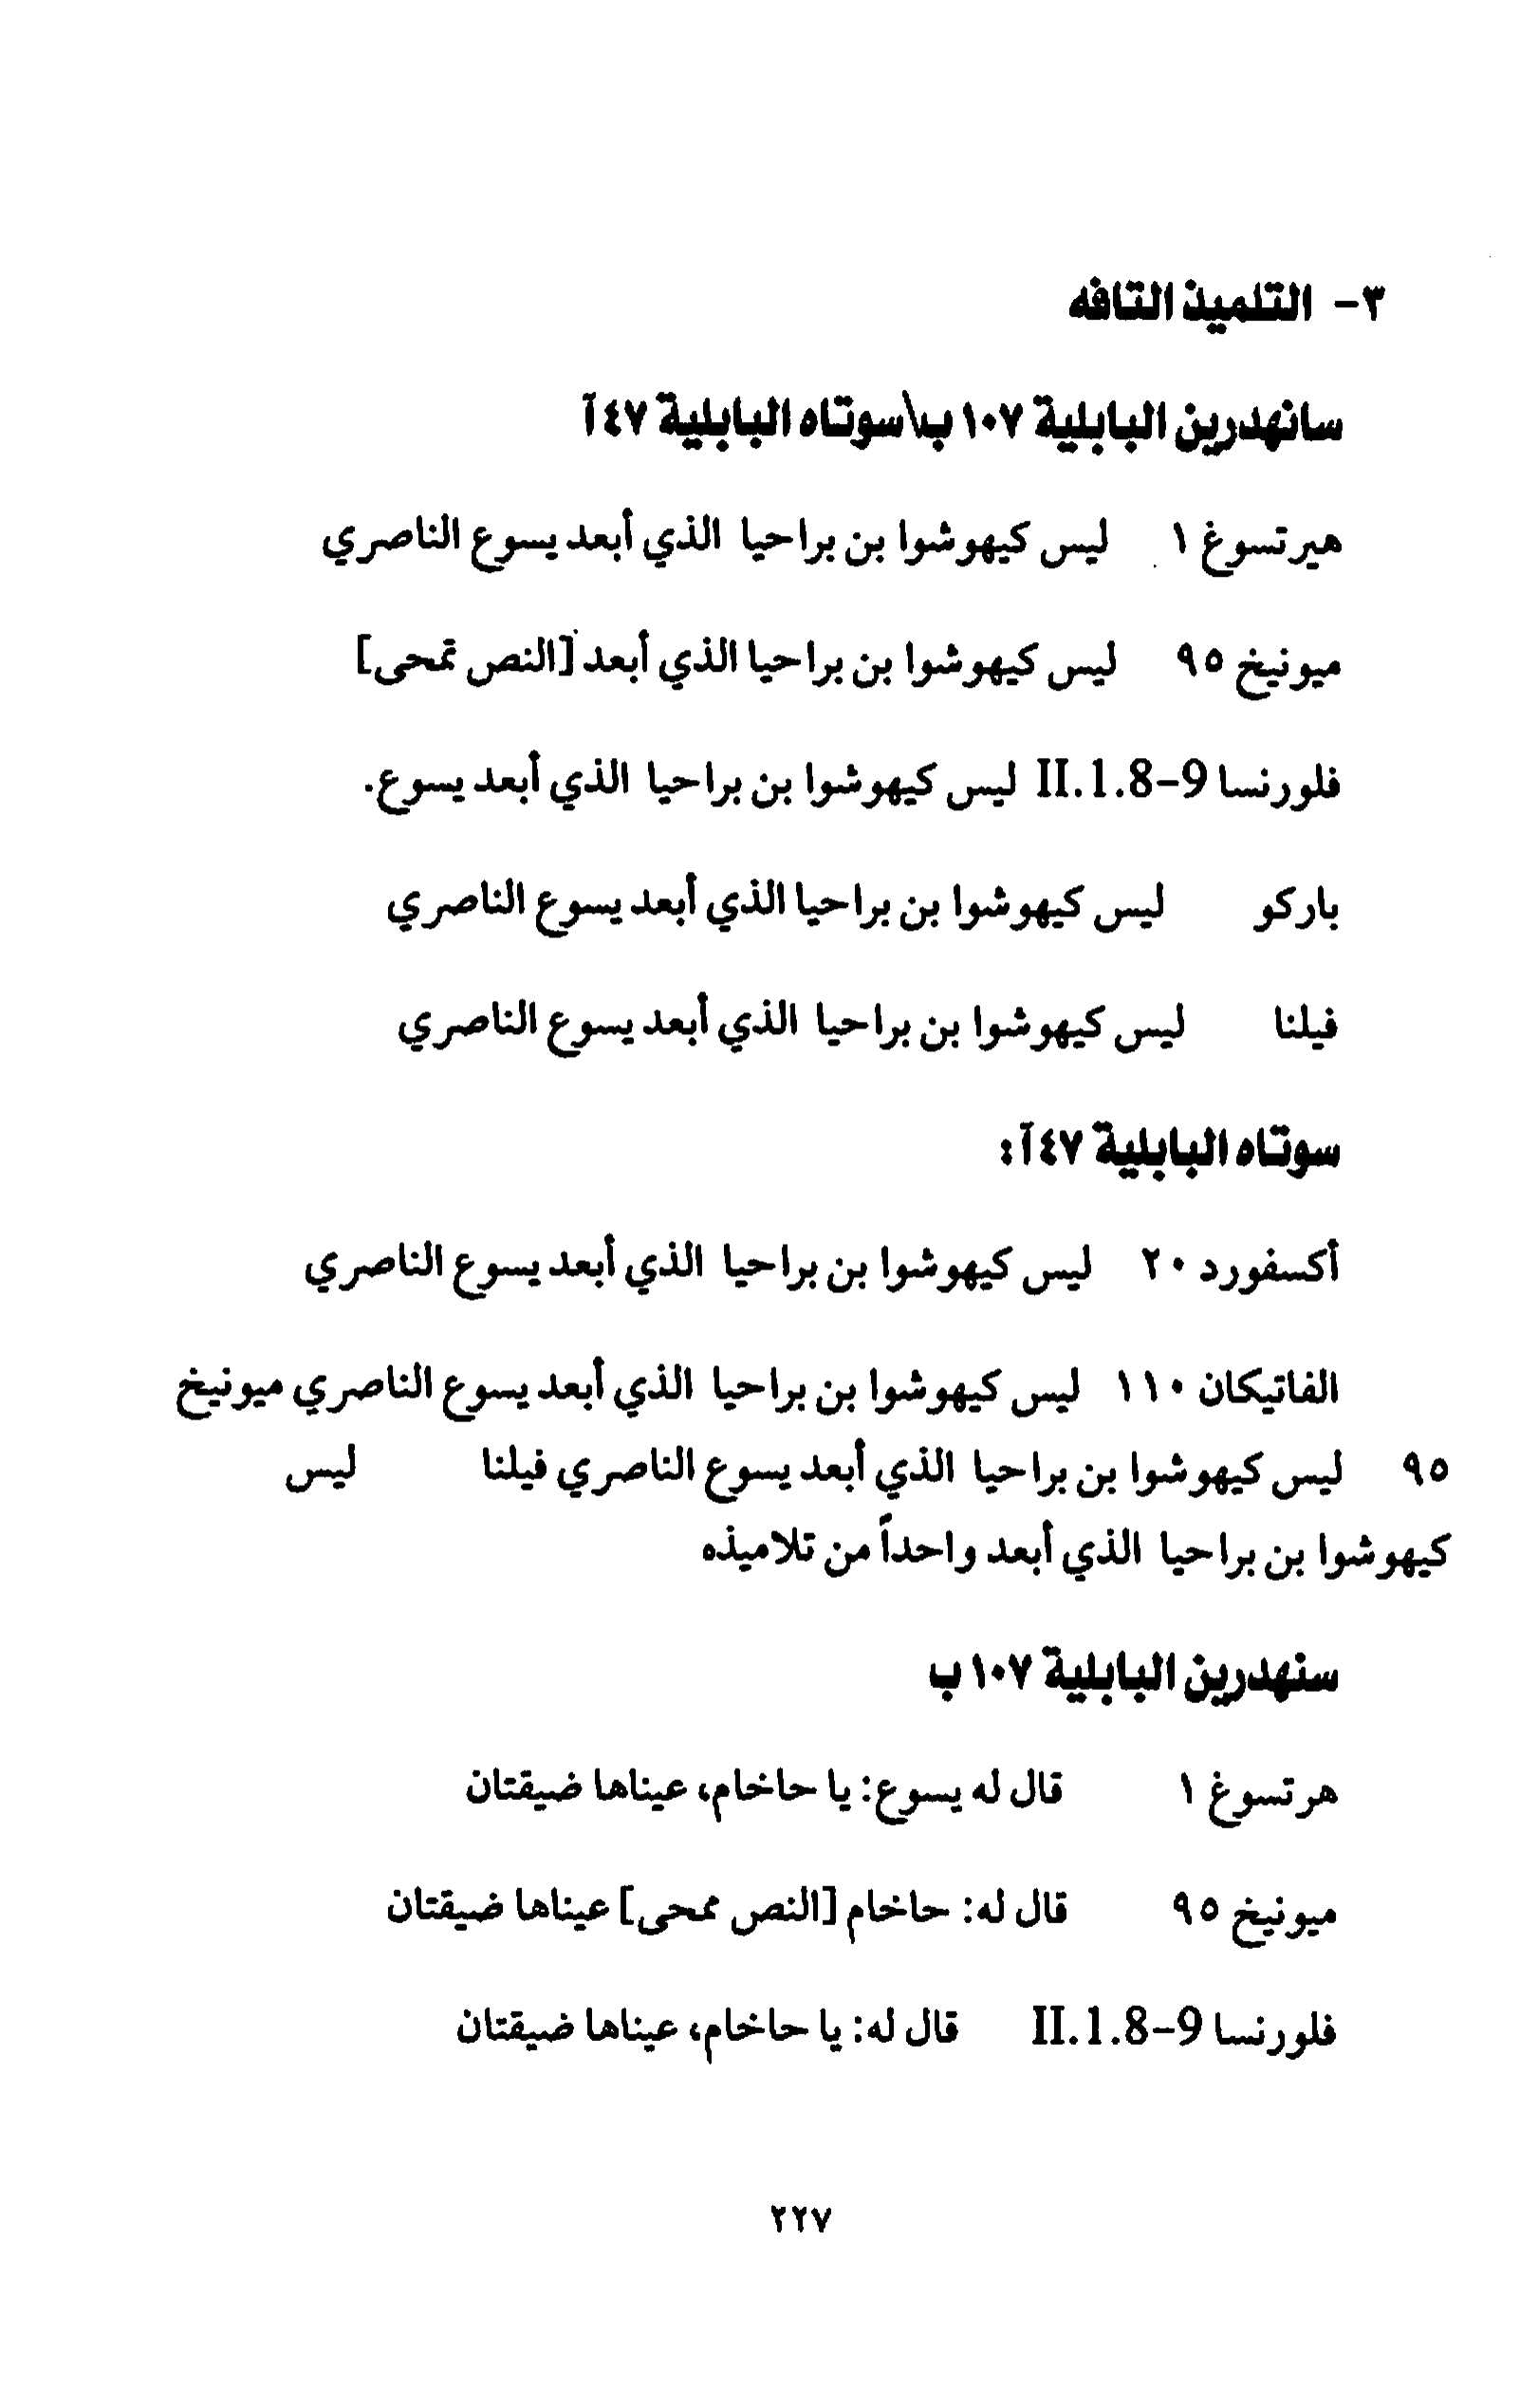 ٣- التلميذ التافه
سانهدرين البابلية ١٠٧ ب\سوتاه البابلية ٤٧ آ
هيرتسوغ ١ ليس كيهوشوا بن براحيا الذي أبعد يسوع الناصري
ميونيخ ٩٥ ليس كيهوشوا بن براحيا الذي أبعد [النص تمحى]
فلورنسا II.1.8-9 ليس كيهوشوا بن براحيا الذي أبعد يسوع.
باركو ليس كيهوشوا بن براحيا الذي أبعد يسوع الناصري
فيلنا ليس كيهوشوا بن براحيا الذي أبعد يسوع الناصري
سوتاه البابلية ٤٧ آ:
أكسفورد ٢٠ ليس كيهوشوا بن براحيا الذي أبعد يسوع الناصري
الفاتيكان ١١٠ ليس كيهوشوا بن براحيا الذي أبعد يسوع الناصري ميونيخ
٩٥ ليس كيهوشوا بن براحيا الذي أبعد يسوع الناصري فيلنا ليس
كيهوشوا بن براحيا الذي أبعد واحداً من تلاميذه
سنهدرين البابلية ١٠٧ ب
هرتسوغ ١ قال له يسوع: يا حاخام، عيناها ضيقتان
ميونيخ ٩٥ قال له: حاخام [النص ممحى] عيناها ضيقتان
فلورنسا II.1.8-9 قال له: يا حاخام، عيناها ضيقتان
٢٢٧